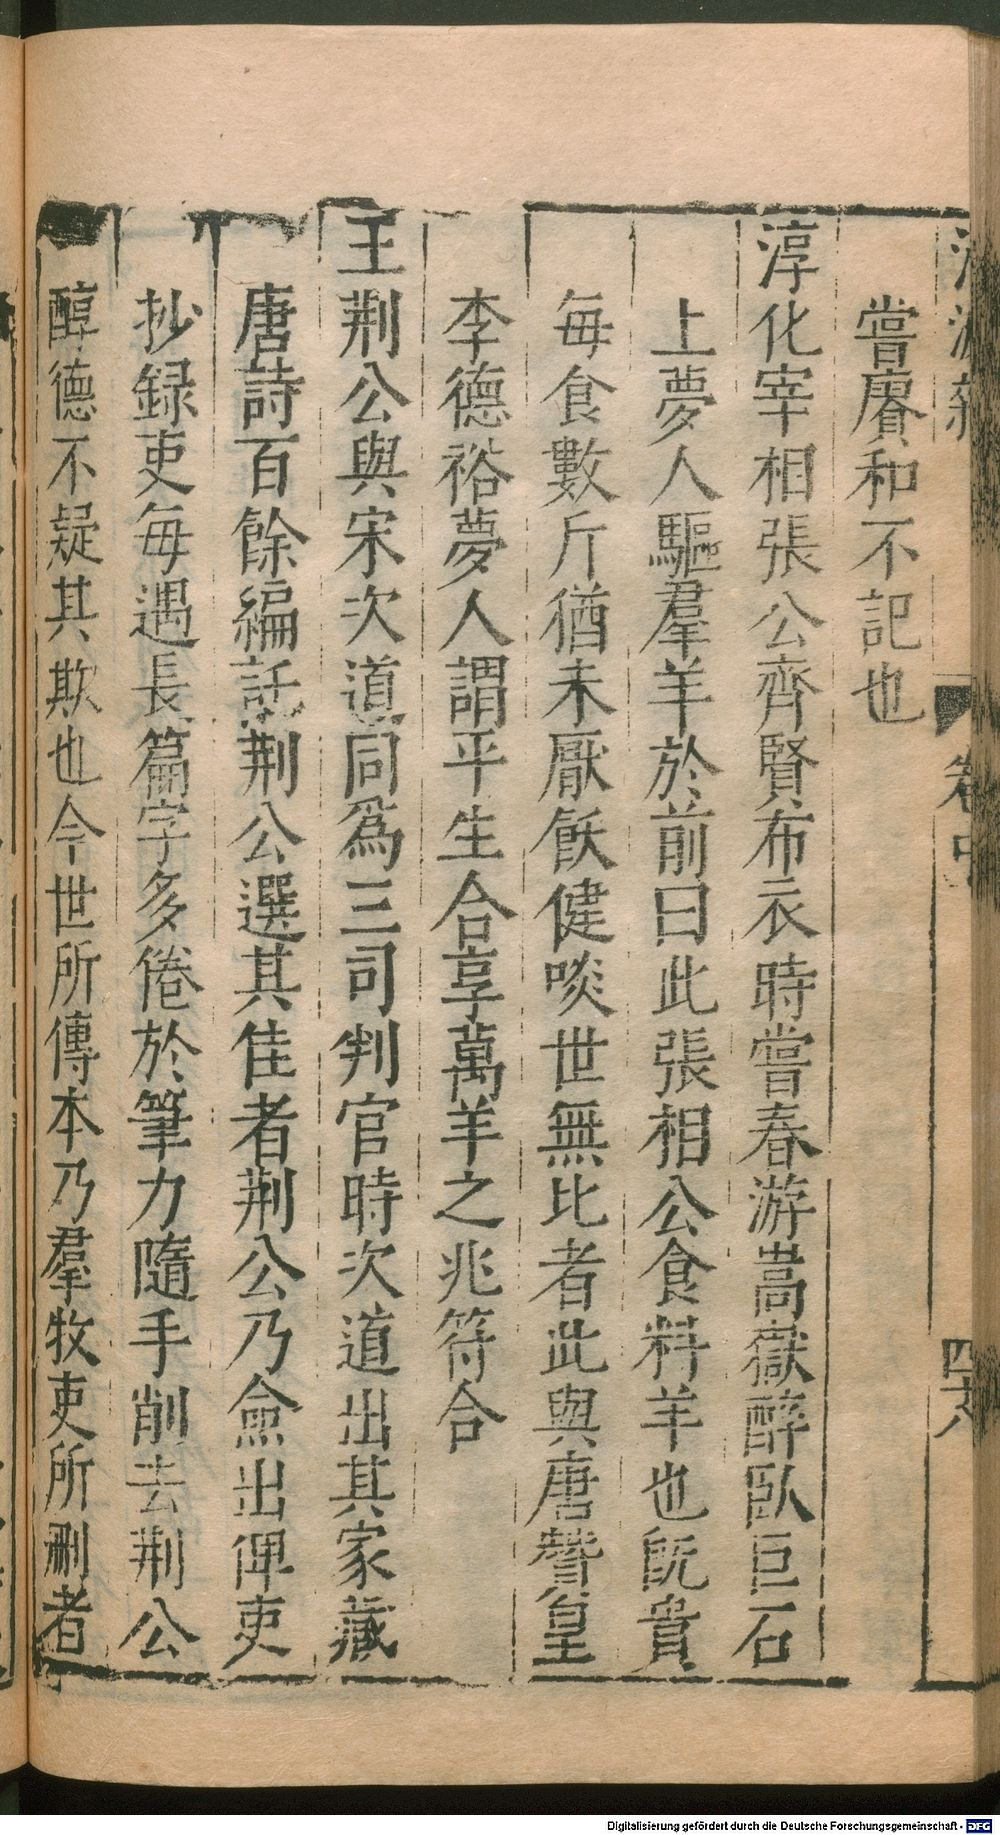 嘗賡和不記也
淳化宰相張公齊賢布衣時嘗春游嵩嶽醉臥巨石
上夢人驅羣羊於前曰此張相公食料羊也既貴
每食數斤猶未厭飫健啖世無比者此與唐贊皇
李德裕夢人謂平生合享萬羊之兆符合
王荆公與宋次道同爲三司判官時次道出其家藏
唐詩百餘編託荆公選其佳者荆公乃僉出俾吏
抄録吏每遇長篇字多倦於筆力隨手削去荆公
醇德不疑其欺也今世所傳本乃羣牧吏所刪者
卷中
四六
Digitalisierung gefördert durch die Deutsche Forschungsgemeinschaft - DFG